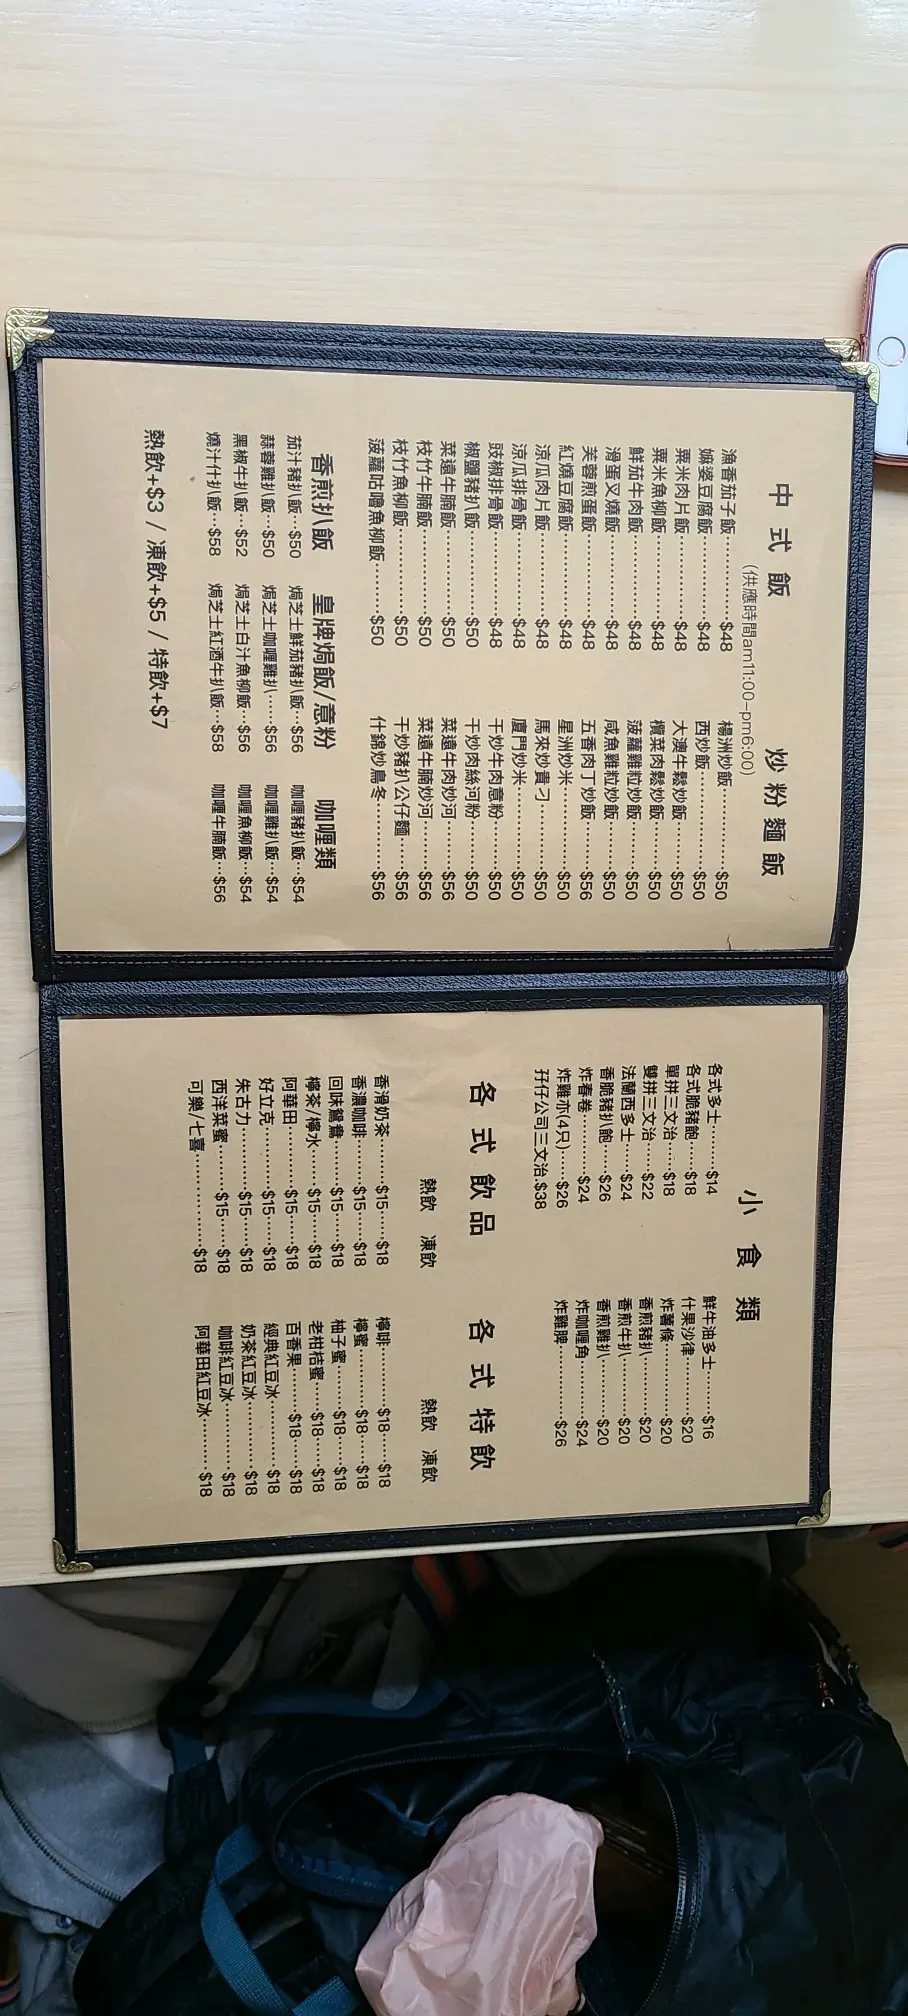 中式飯
(供應時間am11:00-pm6:00)
漁香茄子飯………$48
嫲婆豆腐飯………$48
粟米肉片飯………$48
粟米魚柳飯………$48
鮮茄牛肉飯………$48
滑蛋叉燒飯………$48
芙蓉煎蛋飯………$48
紅燒豆腐飯………$48
涼瓜肉片飯………$48
涼瓜排骨飯………$48
豉椒排骨飯………$48
椒鹽豬扒飯………$50
菜遠牛腩飯………$50
枝竹牛腩飯………$50
枝竹魚柳飯………$50
菠蘿咕嚕魚柳飯……$50
炒粉麵飯
楊洲炒飯…………$50
西炒飯……………$50
大澳牛鬆炒飯……$50
欖菜肉鬆炒飯……$50
菠蘿雞粒炒飯……$50
咸魚雞粒炒飯……$50
五香肉丁炒飯……$56
星洲炒米…………$50
馬來炒貴刁………$50
廈門炒米…………$50
干炒牛肉意粉……$50
干炒肉絲河粉……$50
菜遠牛肉炒河……$56
菜遠牛腩炒河……$56
干炒豬扒公仔麵…$56
什錦炒烏冬………$56
香煎扒飯
茄汁豬扒飯…$50
蒜蓉雞扒飯…$50
黑椒牛扒飯…$52
燒汁什扒飯…$58
皇牌焗飯/意粉
焗芝士鮮茄豬扒飯…$56
焗芝士咖喱雞扒……$56
焗芝士白汁魚柳飯…$56
焗芝士紅酒牛扒飯…$58
咖喱類
咖喱豬扒飯…$54
咖喱雞扒飯…$54
咖喱魚柳飯…$54
咖喱牛腩飯…$56
熱飲+$3 / 凍飲+$5 / 特飲+$7
小食類
各式多士……$14
各式脆豬飽…$18
單拼三文治…$18
雙拼三文治…$22
法蘭西多士…$24
香脆豬扒飽…$26
炸春卷………$24
炸雞亦(4只)…$26
孖仔公司三文治.$38
鮮牛油多士……$16
什果沙律………$20
炸薯條…………$20
香煎豬扒………$20
香煎牛扒………$20
香煎雞扒………$20
炸咖喱角………$24
炸雞脾…………$26
各式飲品
熱飲 凍飲
香滑奶茶……$15……$18
香濃咖啡……$15……$18
回味鴛鴦……$15……$18
檸茶/檸水……$15……$18
阿華田………$15……$18
好立克………$15……$18
朱古力………$15……$18
西洋菜蜜……$15……$18
可樂/七喜……………$18
各式特飲
熱飲 凍飲
檸啡…………$18……$18
檸蜜…………$18……$18
柚子蜜………$18……$18
老柑桔蜜……$18……$18
百香果………$18……$18
經典紅豆冰…………$18
奶茶紅豆冰…………$18
咖啡紅豆冰…………$18
阿華田紅豆冰………$18